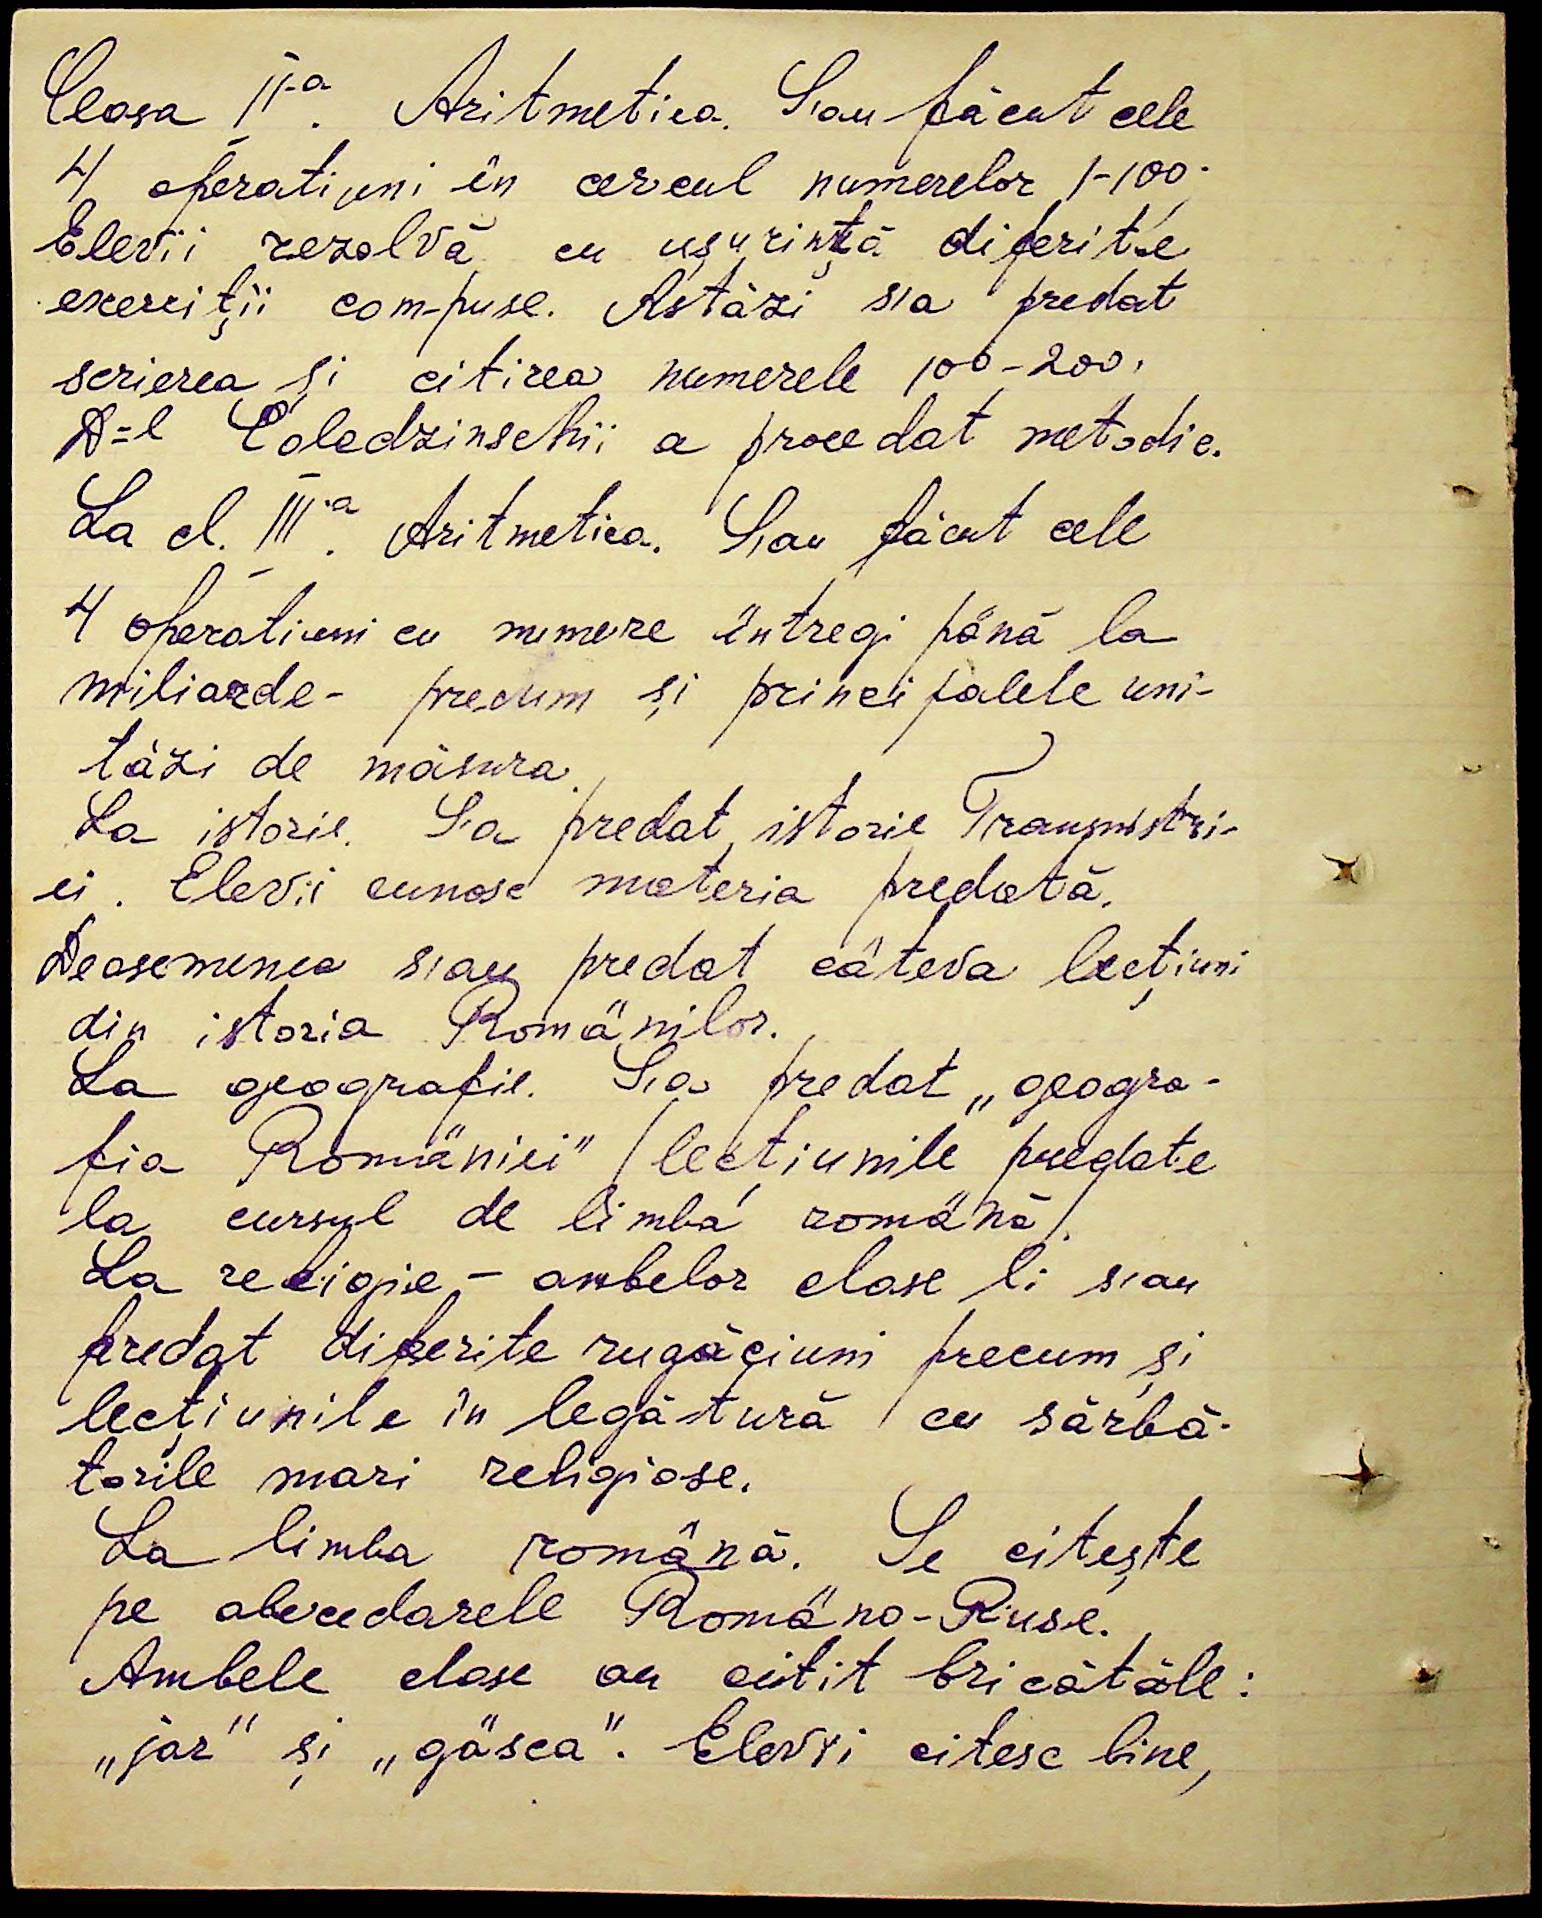 Clasa II-a. Aritmetica. S'au făcut cele
4 operatiuni în cercul numerelor 1-100.
Elevii rezolvă cu ușurință diferite
exerciții compuse. Astăzi s'a predat
scrierea și citirea numerele 100-200.
D=l Coledzinschii a procedat metodic.
La cl. III-a. Aritmetica. S'au făcut cele
4 operatiuni cu numere întregi pănă la
miliarde - precum și principalele uni-
tăzi de măsura.
La istorie. S'a predat istorie Transnistri-
ei. Elevii cunosc materia predată.
Deasemenea s'au predat câteva lecțiuni
din istoria Romänilor.
La geografie. S'a predat „geogra-
fia Romäniei" /lectiunile predate
la cursul de limbă romänă/.
La religie - ambelor clase li s'au
predat diferite rugăciuni precum și
lecțiunile în legătură cu sărbă-
torile mari religiose.
La limba română. Se citește
pe abecedarele Romäno-Ruse.
Ambele clase au citit bricătăle:
„jar" și „gäsca". Elevii citesc bine,